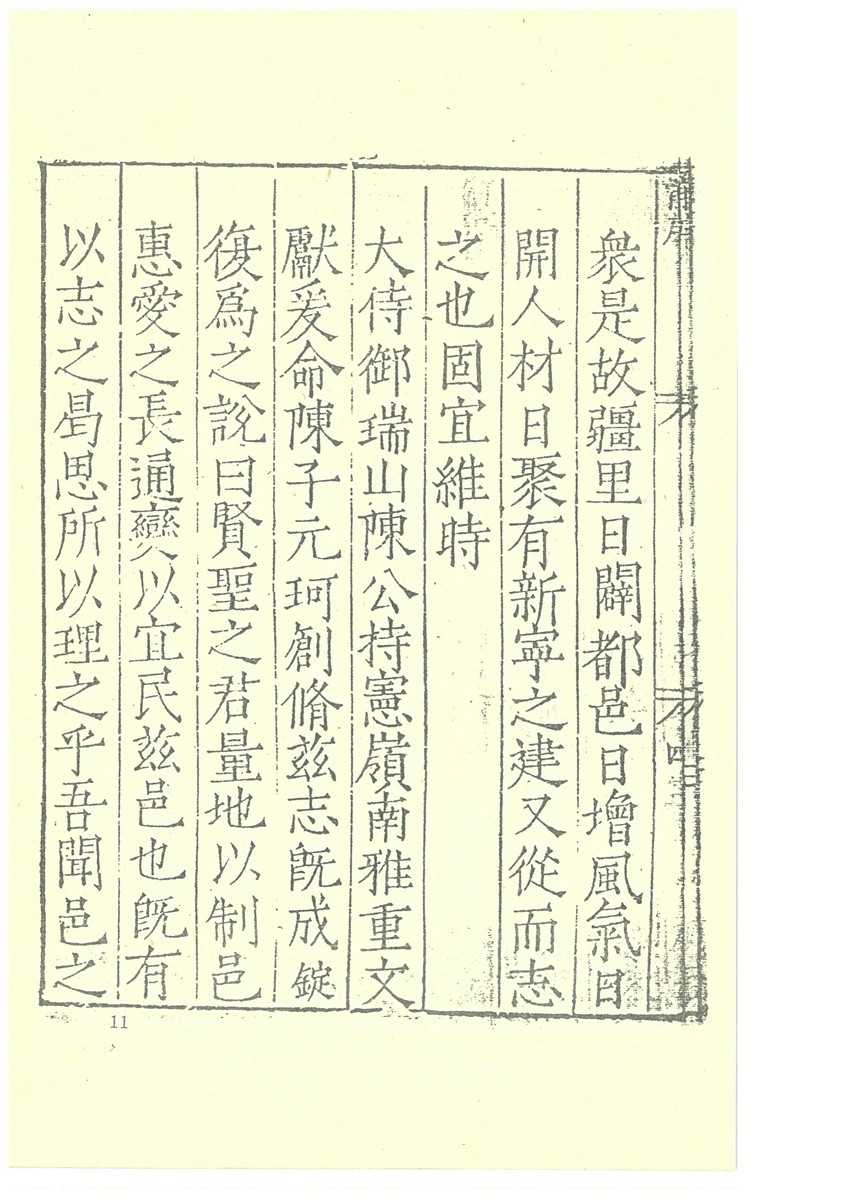 衆是故疆里日闢都邑日增風氣日
開人材日聚有新寧之建又從而志
之也固宜維時
大侍御瑞山陳公持憲嶺南雅重文
獻爰命陳子元珂創脩兹志旣成錠
復爲之說曰賢聖之君量地以制邑
惠愛之長通變以宜民兹邑也旣有
以志之曷思所以理之乎吾聞邑之
11